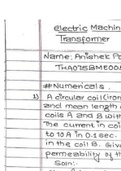 Electric Machin
Transformer
Name: Anishek Po
THA075BME00
# Numericals.
1) A circular coil (iron
and mean length o
coils A and B with
The current in coil
to 10 A in 0.1 sec.
in the coil B. Give
permeability of th
Soln:-